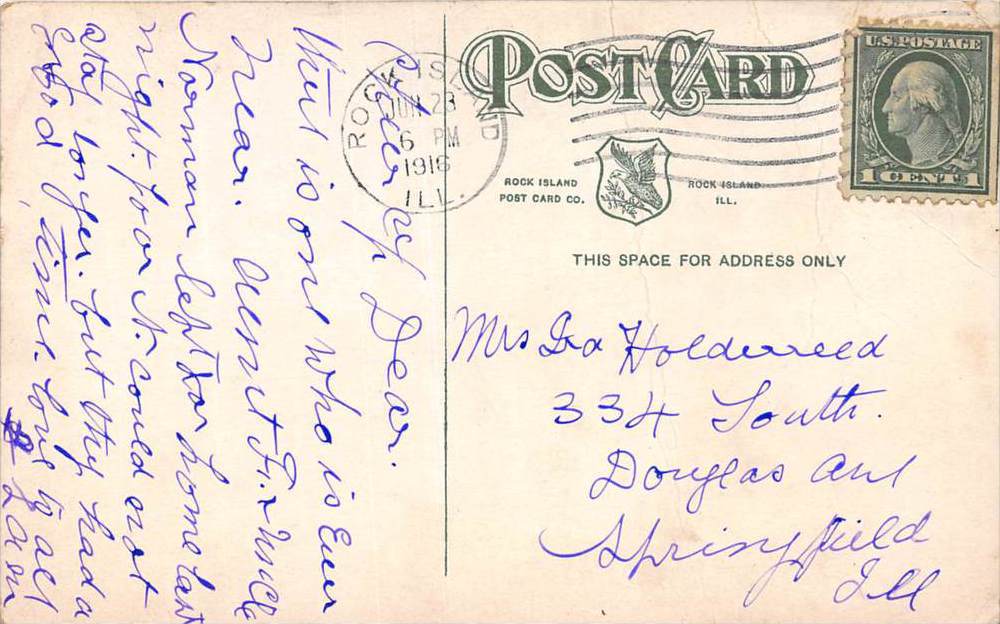 POST CARD
U.S. POSTAGE
1 CENT 1
ROCK ISLAND
JUN 23
6 PM
1916
ILL.
ROCK ISLAND
POST CARD CO.
ROCK ISLAND
ILL.
THIS SPACE FOR ADDRESS ONLY
Mrs Ira Holderreed
334 South.
Douglas
Springfield
Ill
Cheer up Dear.
there is one who is Ever
near. Aunt F. &
Norman left for home last
night. for it could not
stay longer. but they had a
Good, time. love to all